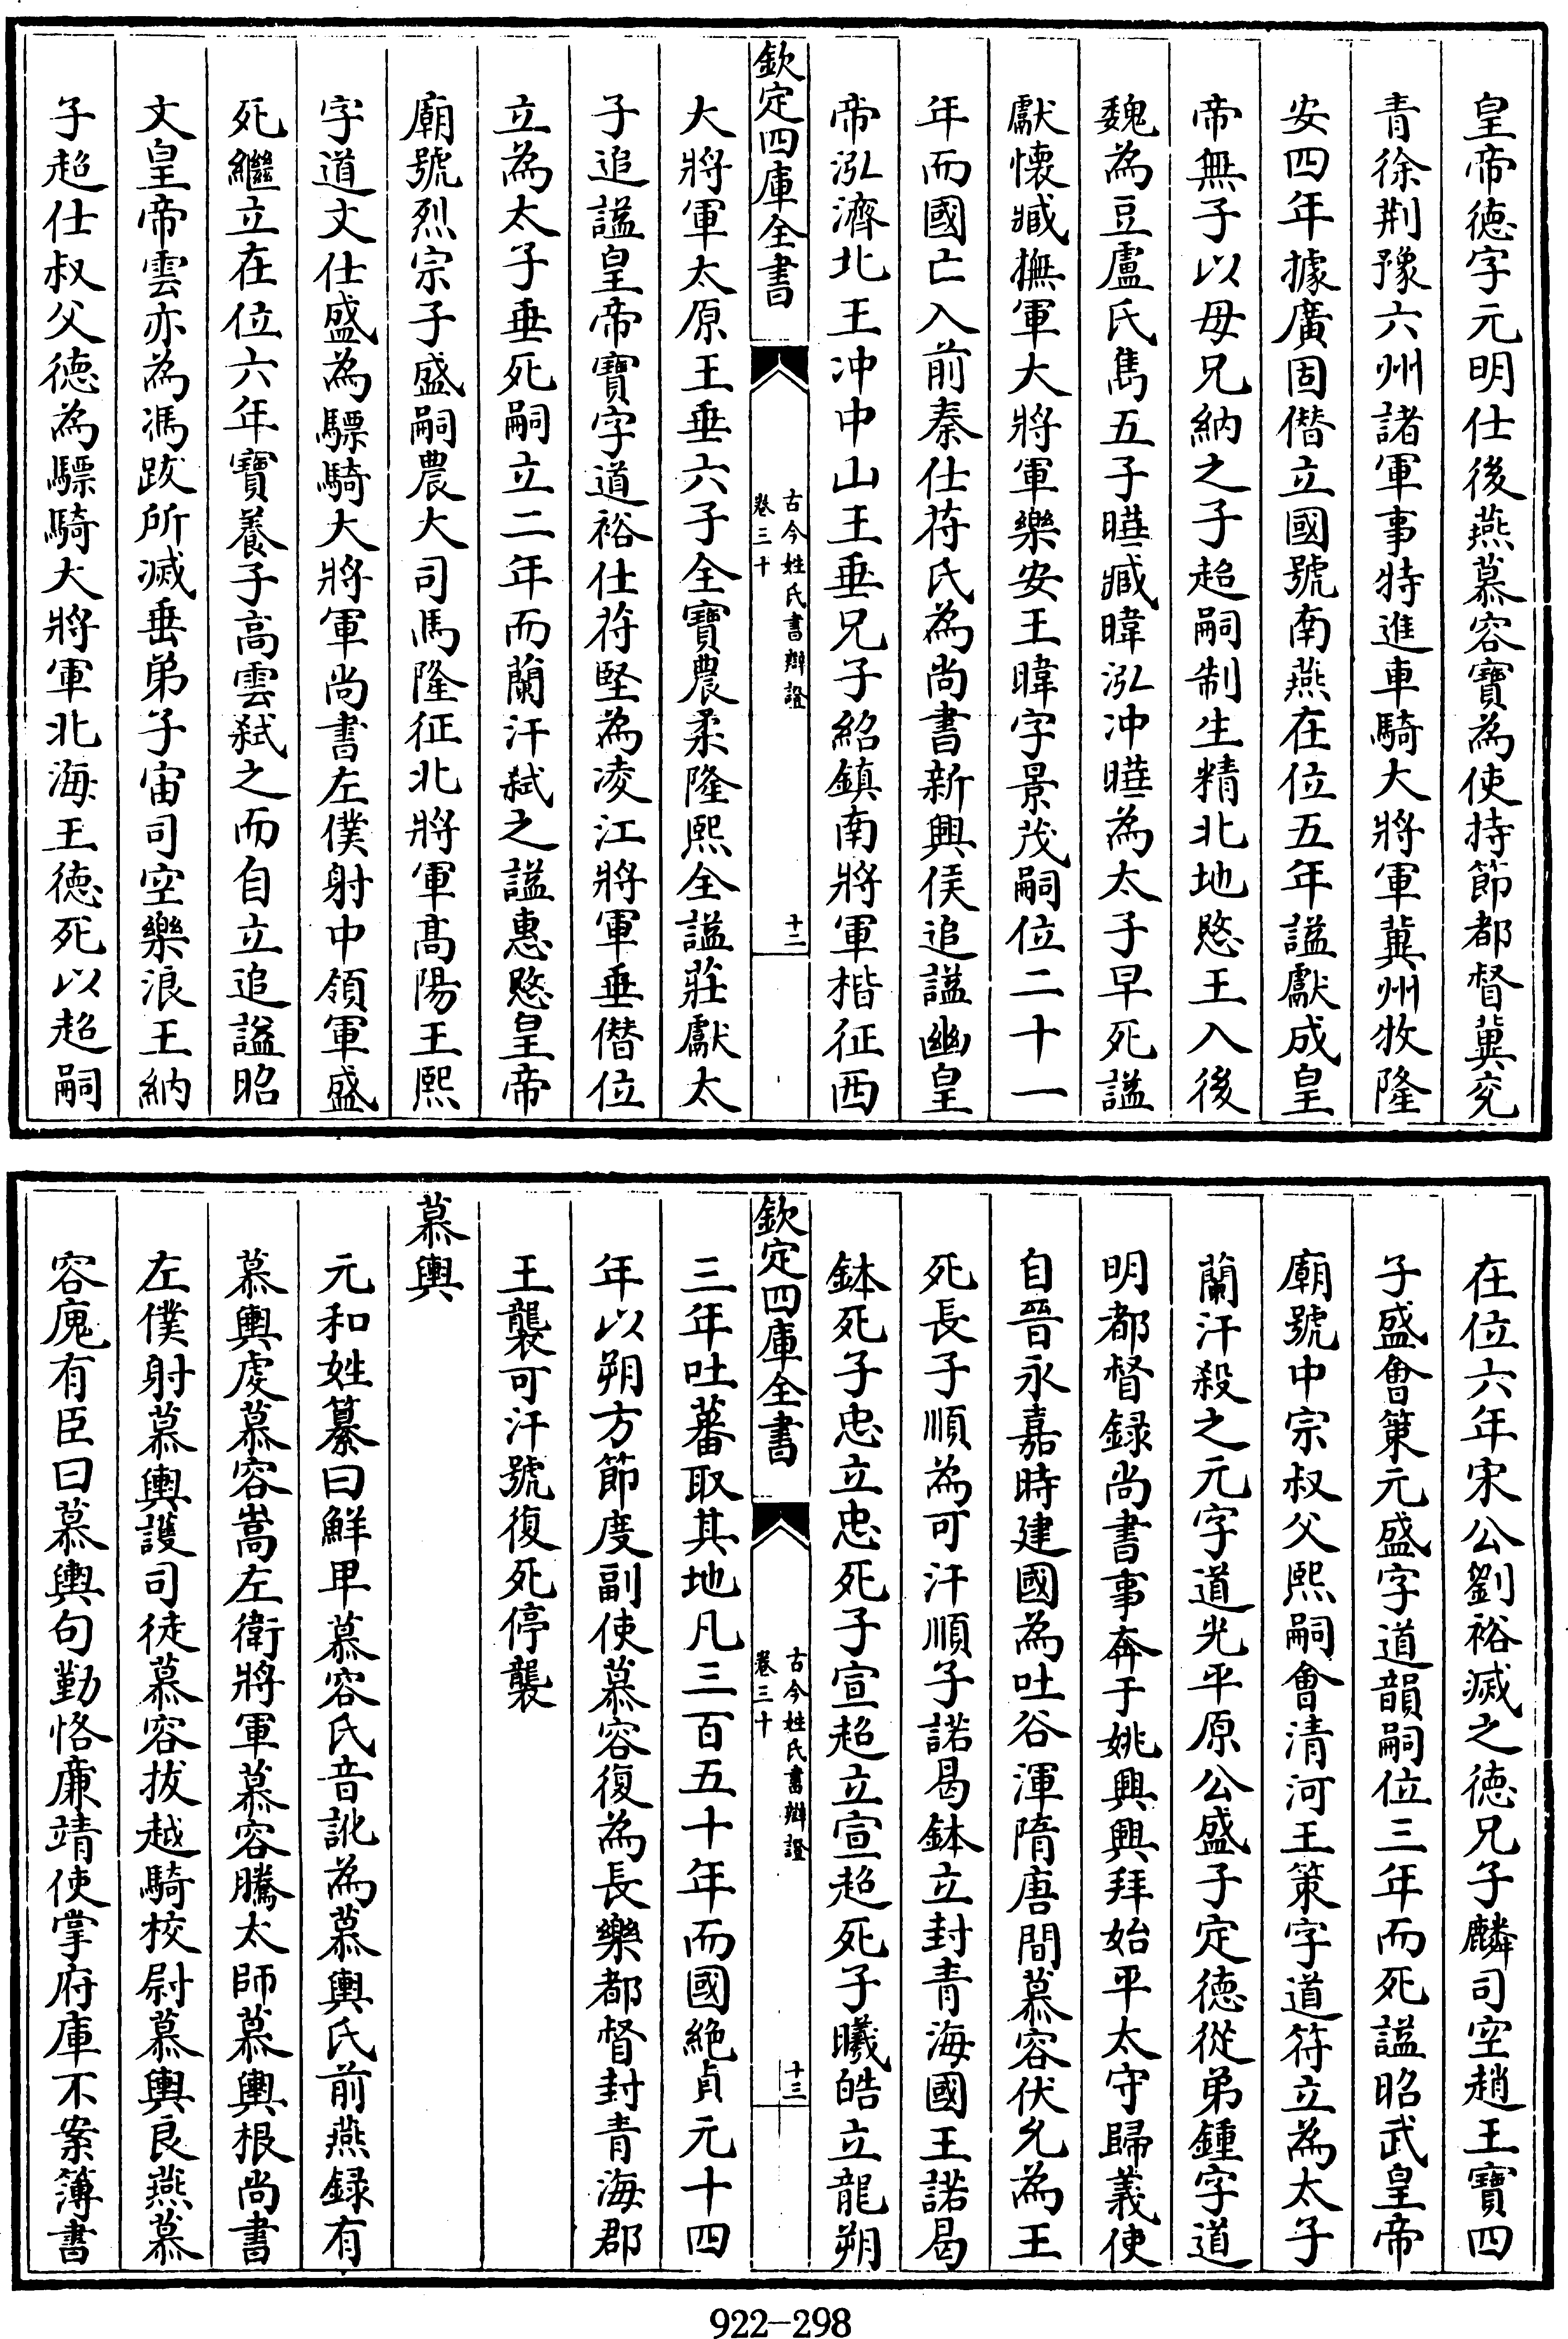 皇帝徳字元明仕後燕慕容寶為使持節都督冀兖
青徐荆豫六州諸軍事特進車騎大將軍冀州牧隆
安四年據廣固僣立國號南燕在位五年諡獻成皇
帝無子以母兄納之子超嗣制生精北地愍王入後
魏為豆盧氏雋五子曄臧暐泓冲曄為太子早死諡
獻懐臧撫軍大將軍樂安王暐字景茂嗣位二十一
年而國亡入前秦仕苻氏為尚書新興侯追諡幽皇
帝泓濟北王冲中山王垂兄子紹鎮南將軍楷征西
欽定四庫全書
古今姓氏書辯證
卷三十
十二
大將軍太原王垂六子全寶農柔隆熙全諡莊獻太
子追諡皇帝寶字道裕仕苻堅為凌江將軍垂僣位
立為太子垂死嗣立二年而蘭汗弑之諡惠愍皇帝
廟號烈宗子盛嗣農大司馬隆征北將軍髙陽王熙
字道文仕盛為驃騎大將軍尚書左僕射中領軍盛
死繼立在位六年寶養子高雲弑之而自立追諡昭
文皇帝雲亦為馮跋所滅垂弟子宙司空樂浪王納
子超仕叔父徳為驃騎大將軍北海王徳死以超嗣
在位六年宋公劉裕滅之徳兄子麟司空趙王寶四
子盛會策元盛字道韻嗣位三年而死諡昭武皇帝
廟號中宗叔父熙嗣會清河王策字道符立為太子
蘭汗殺之元字道光平原公盛子定徳從弟鍾字道
明都督録尚書事奔于姚興興拜始平太守歸義使
自晉永嘉時建國為吐谷渾隋唐間慕容伏允為王
死長子順為可汗順子諾曷鉢立封青海國王諾曷
鉢死子忠立忠死子宣超立宣超死子曦皓立龍朔
欽定四庫全書
古今姓氏書辯證
卷三十
十三
三年吐蕃取其地凡三百五十年而國絶貞元十四
年以朔方節度副使慕容復為長樂都督封青海郡
王襲可汗號復死停襲
慕輿
元和姓纂曰鮮卑慕容氏音訛為慕輿氏前燕録有
慕輿虔慕容嵩左衛將軍慕容騰太師慕輿根尚書
左僕射慕輿䕶司徒慕容抜越騎校尉慕輿良燕慕
容廆有臣曰慕輿句勤恪亷靖使掌府庫不案簿書
922-298